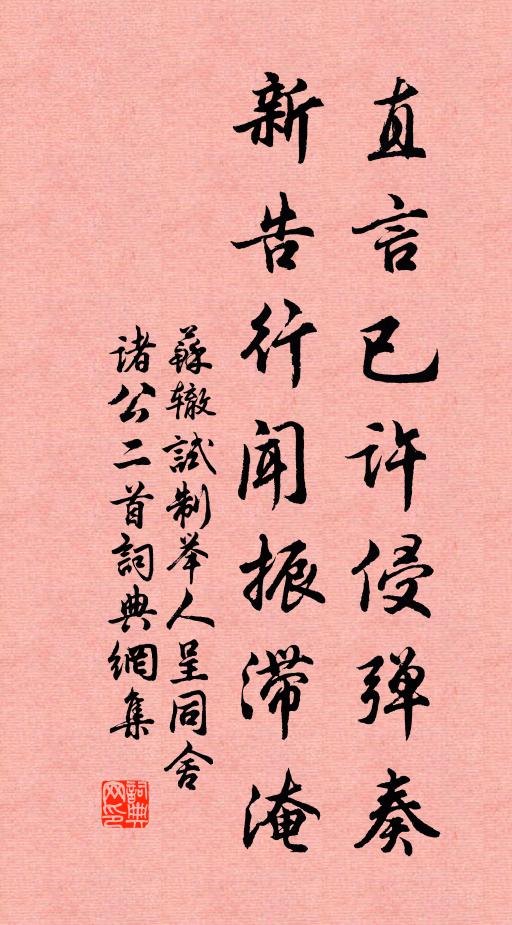 直言已许侵弹奏
新告行闻振滞淹
蘇辙試制举人呈同舍
诸公二首詞典網集
詞典网印